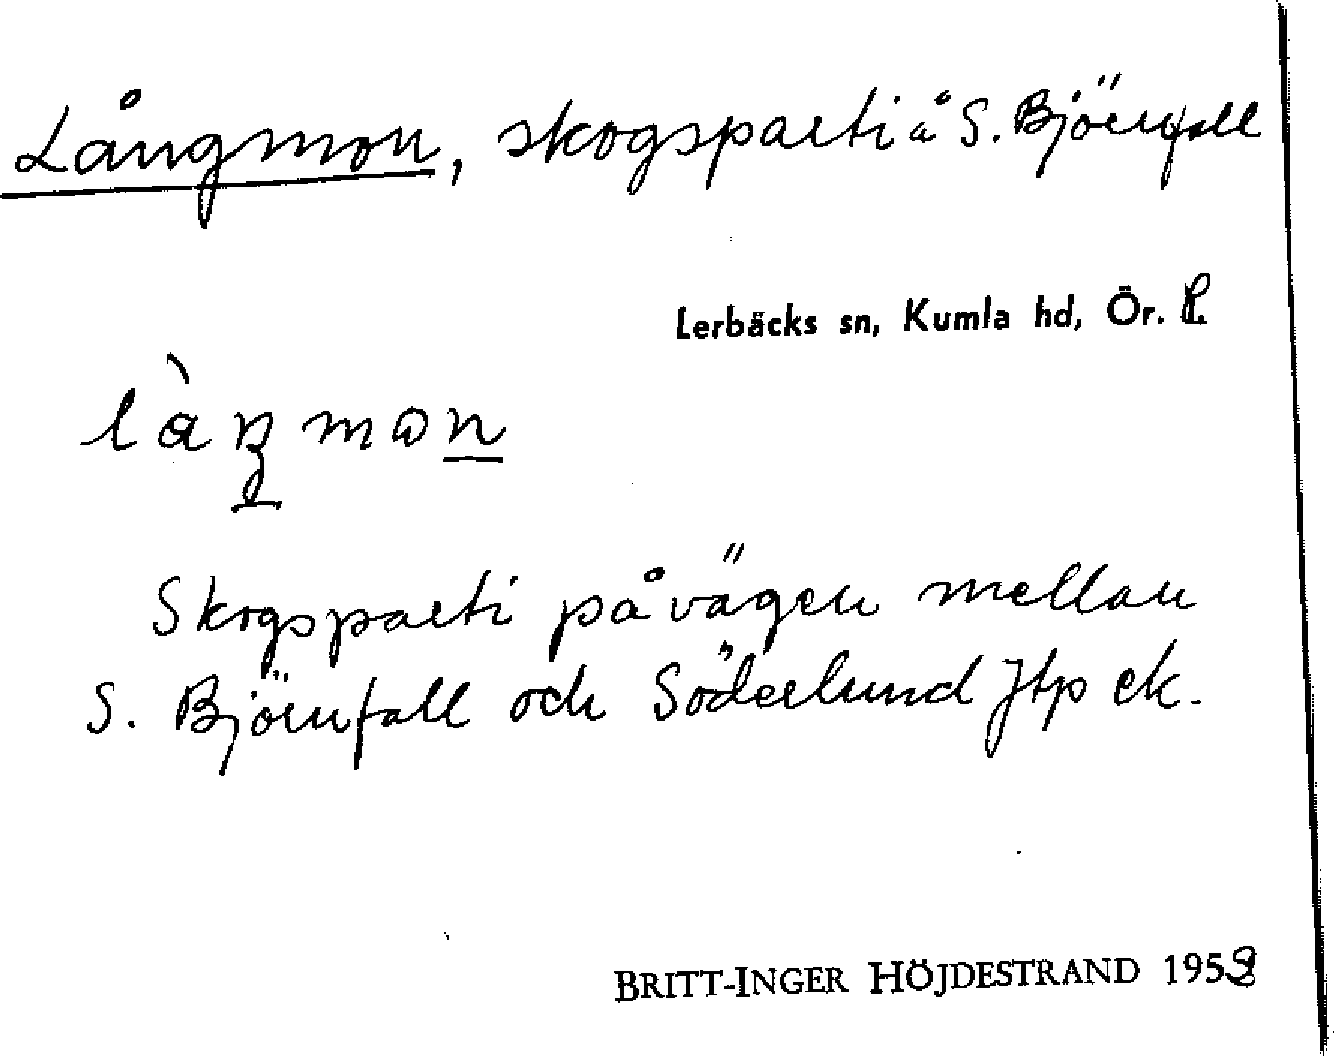 Långmon, skogsparti å S. Björnfall
Lerbäcks sn, Kumla hd, Ör. l.
Skogsparti på vägen mellan
S. Björnfall och Söderlund Jtp ek.
BRITT-INGER HÖJDESTRAND 1959